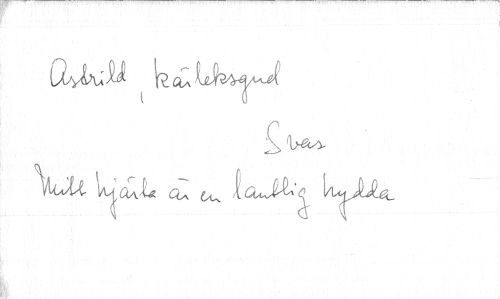 Astrild, kärleksgud
Svas
Mitt hjärta är en lantlig hydda